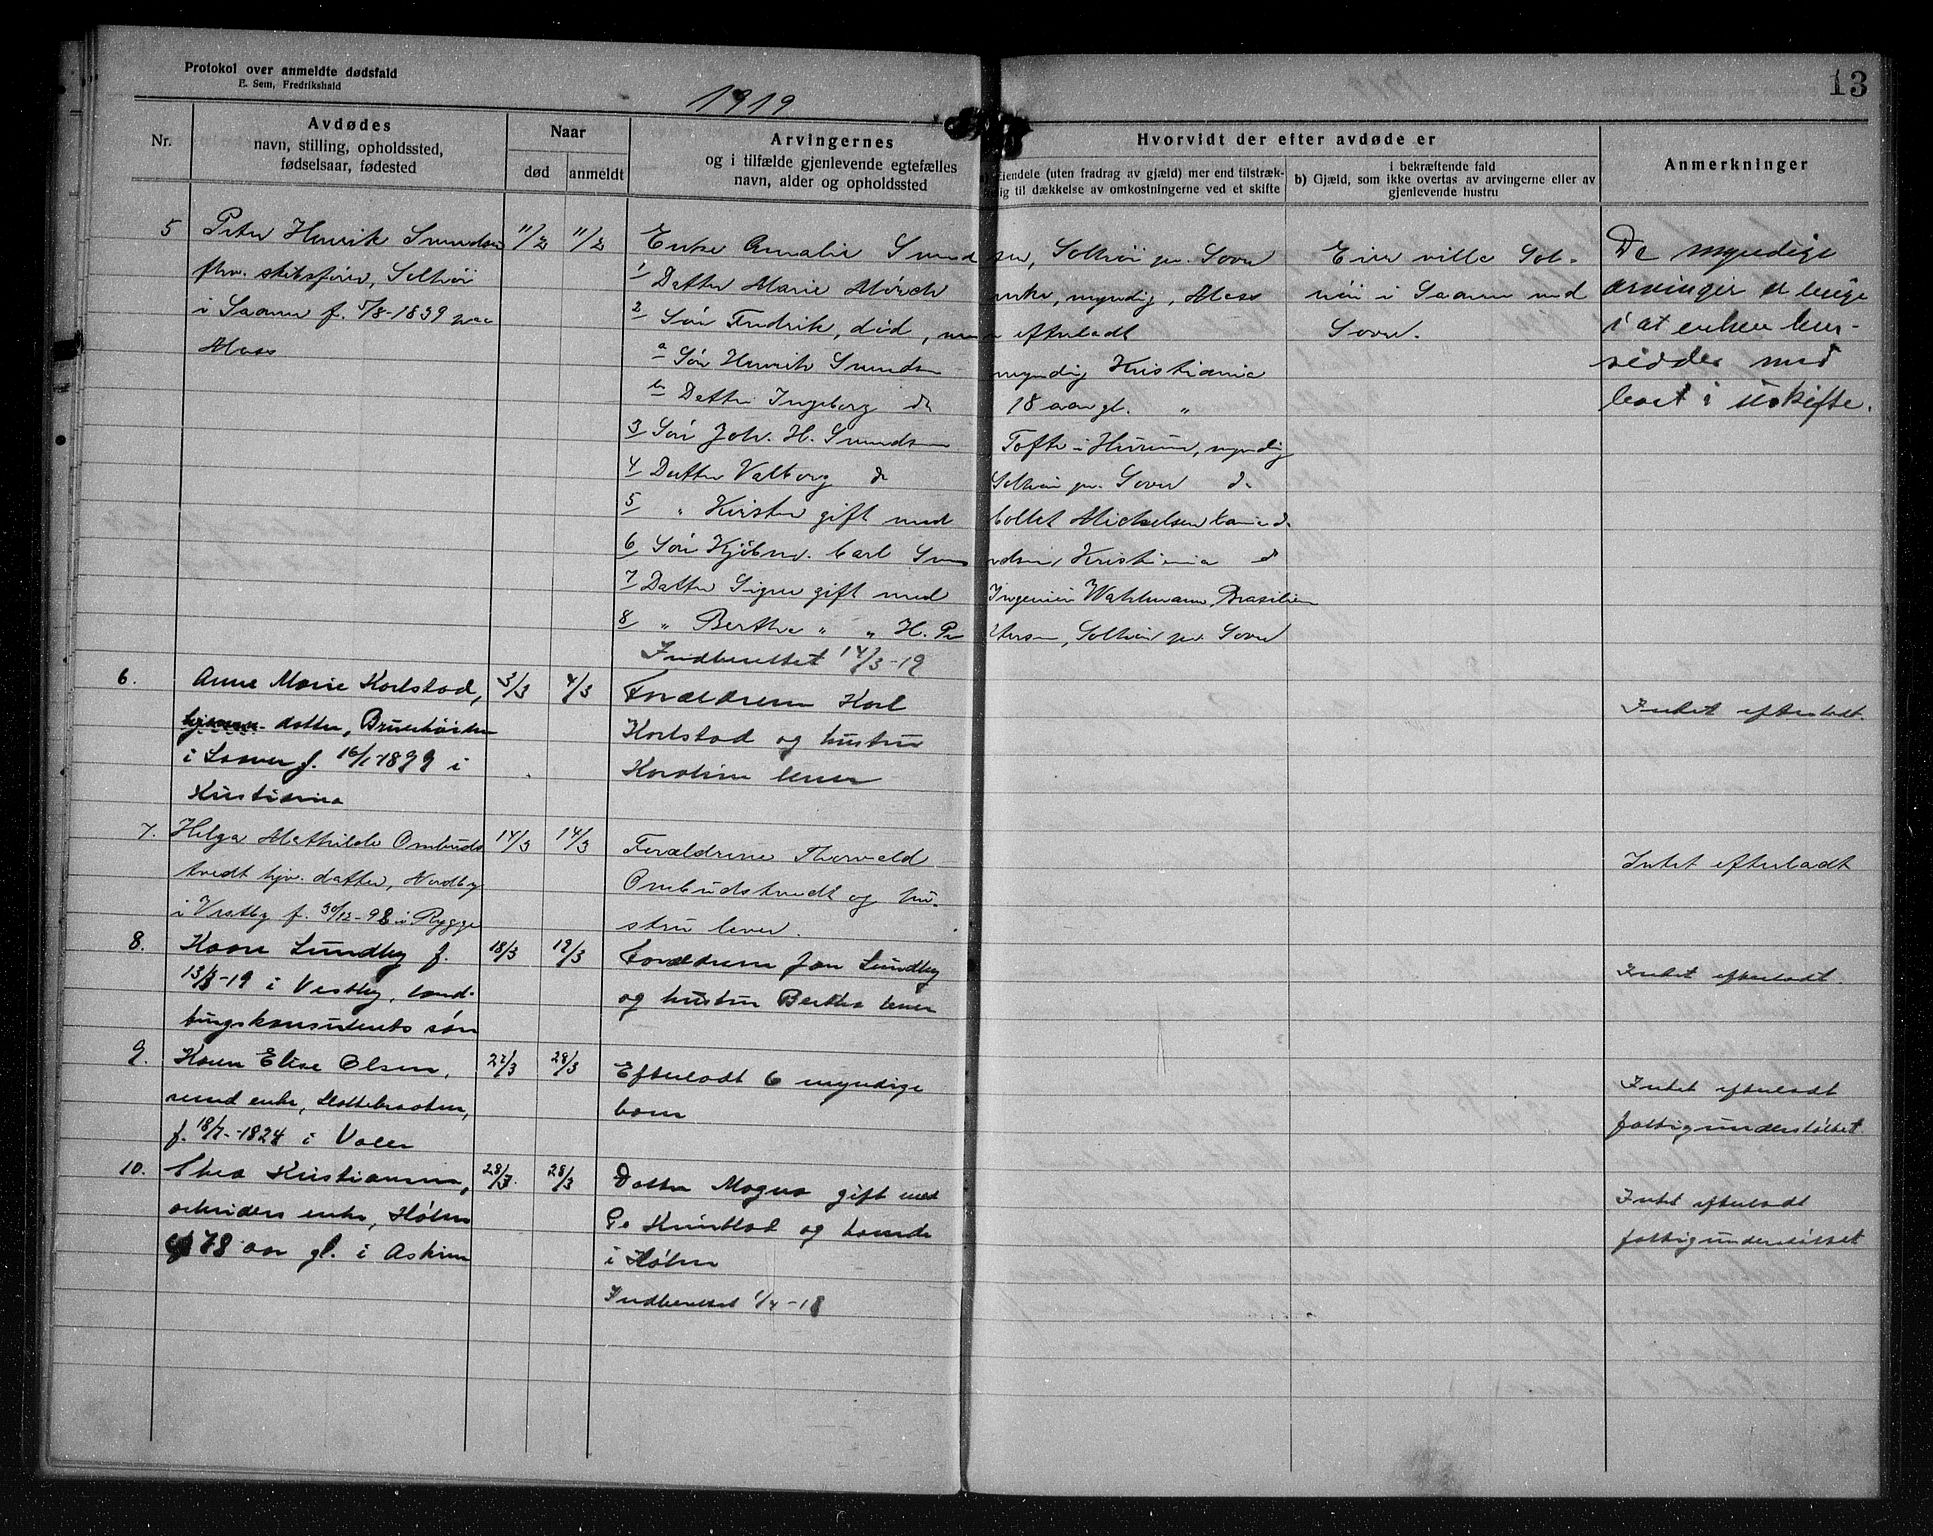 Protokol over anmeldte dødsfald
E. Sem, Fredrikshald
1919
13
Nr.
Avdødes
navn, stilling, opholdssted,
fødselsaar, fødested
Naar
død
anmeldt
Arvingernes
og i tilfælde gjenlevende egtefælles
navn, alder og opholdssted
Hvorvidt der efter avdøde er
Eiendele (uten fradrag av gjæld) mer end tilstræk-
lig til dækkelse av omkostningerne ved et skifte
i bekræftende fald
b) Gjæld, som ikke overtas av arvingerne eller av
gjenlevende hustru
Anmerkninger
5 Peter Henrik Svendsen 11/2 11/2
fhv. skibsfører, Solhøi
i Saaner f. 5/8-1839 paa
Moss
Enke Amalie Svendsen, Solhøi pr. Soon
1 Datter Marie Mørch enke, myndig, Moss
2 Søn Fredrik, død, men efterladt
a Søn Henrik Svendsen myndig Kristiania
b Datter Ingeborg do 18 aar gl. "
3 Søn Joh. H. Svendsen Tofte i Hurum, myndig
4 Datter Valborg do Solhøi pr. Soon do
5 " Kirsten gift med Collet Michelsen do
6 Søn Kjøbmd. Carl Svendsen, Kristiania do
7 Datter Signe gift med Ingeniør Wahlmann, Brasilien
8 " Berthe " " H. Petersen, Solhøi pr. Soon
Indberettet 14/3-19
Eier villa Sol-
høi i Saaner ved
Soon.
De myndige
arvinger er enige
i at enken hen-
sidder med
boet i uskifte.
6. Anne Marie Karlstad, 3/3 4/3
datter, Brevikåsen
i Saaner f. 16/1-1899 i
Kristiania
Forældrene Karl
Karlstad og hustru
Karoline lever
Intet efterladt
7. Helga Mathilde Ombuds 14/3 14/3
tvedt hjv. datter, Nordby
i Vestby f. 30/12-98 i Rygge
Forældrene Thorvald
Ombudstvedt og hu-
stru lever.
Intet efterladt
8. Kaare Sundby f. 18/3 19/3
13/3-19 i Vestby, land-
brugskonsulents søn
Forældrene Jon Sundby
og hustru Bertha lever
Intet efterladt.
9. Karen Elise Olsen, 27/3 28/3
enke,
f. 18/7-1824 i Vaaler
Efterladt 6 myndige
barn
Intet efterladt
fattigunderstøttet.
10. Thea Kristiansen, 28/3. 28/3
arbeiders enke, Hølen
78 aar gl. i Askim
Datter Magna gift med
og boende
i Hølen
Indberettet 1/4-18
Intet efterladt
fattigunderstøttet